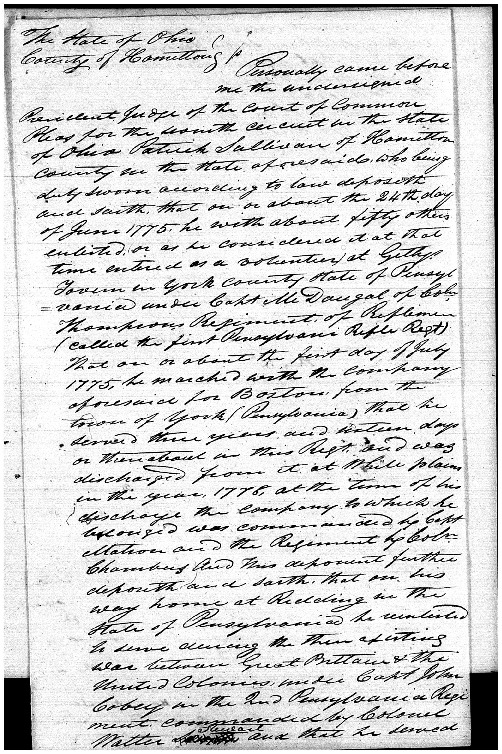 The State of Ohio
County of Hamilton
Personally came before
me the undersigned
President Judge of the Court of Common
Pleas for the ninth circuit in the State
of Ohio Patrick Sullivan of Hamilton
County in the State aforesaid, who being
duly sworn according to law deposeth
and saith, that on or about the 24th day
of June 1775, he with about fifty others
enlisted, or as he considered it at that
time entered as a volunteer, at Gettys
Tavern in York County State of Pensyl
=vania under Capt McDaugal of Colo
Thompsons Regiment of Reflemen
(called the first Pensylvania Refle Regt)
That on or about the first day of July
1775, he marched with the company
aforesaid for Boston, from the
town of York (Pensylvania) that he
served three years and days
or thereabout in this Regt, and was
discharged from it at White plains
in the year, 1778, at the time of his
discharge the company to which he
belonged was commanded by Capt
and the Regiment by Colo
Chambers And this deponent further
deposeth and saith, that on his
way home at Redding in the
State of Pensylvania he reenlisted
to serve during the then existing
war between Great Brittain & the
United Colonies, under Capt John
in the 2nd Pensylvania Regi
ment commanded by Colonel
Walter Stewart and that he served